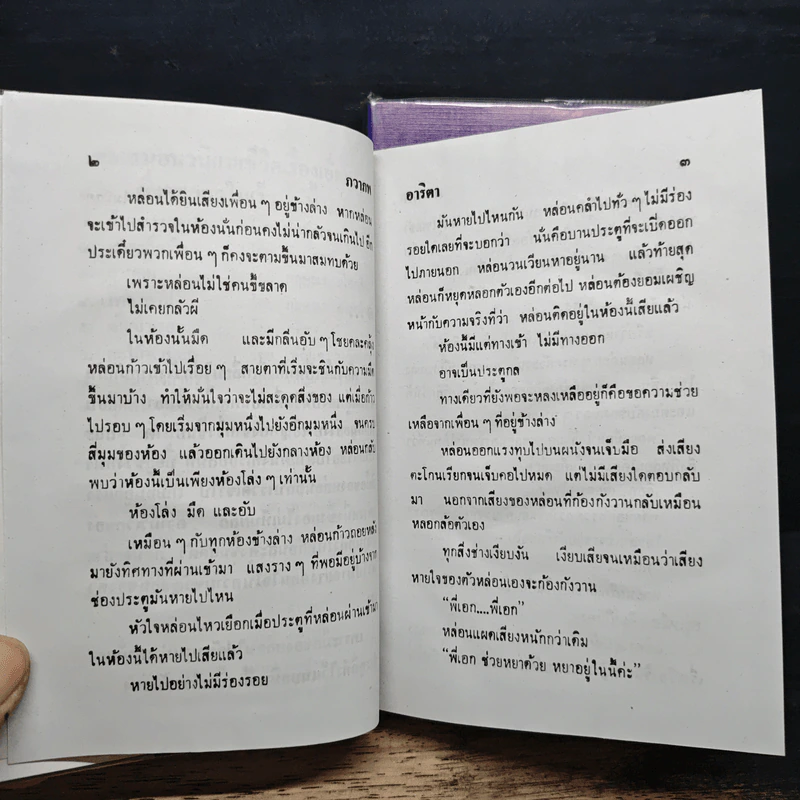 ๒
ภวาภพ
หล่อนได้ยินเสียงเพื่อน ๆ อยู่ข้างล่าง หากหล่อน
จะเข้าไปสำรวจในห้องนั่นก่อนคงไม่น่ากลัวจนเกินไป อีก
ประเดี๋ยวพวกเพื่อน ๆ ก็คงจะตามขึ้นมาสมทบด้วย
เพราะหล่อนไม่ใช่คนขี้ขลาด
ไม่เคยกลัวผี
ในห้องนั้นมืด และมีกลิ่นอับ ๆ โชยคละคลุ้ง
หล่อนก้าวเข้าไปเรื่อย ๆ สายตาที่เริ่มจะชินกับความมืด
ขึ้นมาบ้าง ทำให้มั่นใจว่าจะไม่สะดุดสิ่งของ แต่เมื่อก้าว
ไปรอบ ๆ โดยเริ่มจากมุมหนึ่งไปยังอีกมุมหนึ่ง จนครบ
สี่มุมของห้อง แล้วออกเดินไปยังกลางห้อง หล่อนกลับ
พบว่าห้องนี้เป็นเพียงห้องโล่ง ๆ เท่านั้น
ห้องโล่ง มืด และอับ
เหมือน ๆ กับทุกห้องข้างล่าง หล่อนก้าวถอยหลัง
มายังทิศทางที่ผ่านเข้ามา แสงราง ๆ ที่พอมีอยู่บ้างจาก
ช่องประตูมันหายไปไหน
หัวใจหล่อนไหวเยือกเมื่อประตูที่หล่อนผ่านเข้ามา
ในห้องนี้ได้หายไปเสียแล้ว
หายไปอย่างไม่มีร่องรอย
๓
อาริตา
มันหายไปไหนกัน หล่อนคลำไปทั่ว ๆ ไม่มีร่อง
รอยใดเลยที่จะบอกว่า นั่นคือบานประตูที่จะเปิดออก
ไปภายนอก หล่อนวนเวียนหาอยู่นาน แล้วท้ายสุด
หล่อนก็หยุดหลอกตัวเองอีกต่อไป หล่อนต้องยอมเผชิญ
หน้ากับความจริงที่ว่า หล่อนติดอยู่ในห้องนี้เสียแล้ว
ห้องนี้มีแต่ทางเข้า ไม่มีทางออก
อาจเป็นประตูกล
ทางเดียวที่ยังพอจะหลงเหลืออยู่ก็คือขอความช่วย
เหลือจากเพื่อน ๆ ที่อยู่ข้างล่าง
หล่อนออกแรงทุบไปบนผนังจนเจ็บมือ ส่งเสียง
ตะโกนเรียกจนเจ็บคอไปหมด แต่ไม่มีเสียงใดตอบกลับ
มา นอกจากเสียงของหล่อนที่ก้องกังวานกลับเหมือน
หลอกล้อตัวเอง
ทุกสิ่งช่างเงียบงัน เงียบเสียจนเหมือนว่าเสียง
หายใจของตัวหล่อนเองจะก้องกังวาน
“พี่เอก....พี่เอก”
หล่อนแผดเสียงหนักกว่าเดิม
“พี่เอก ช่วยหยาด้วย หยาอยู่ในนี้ค่ะ”